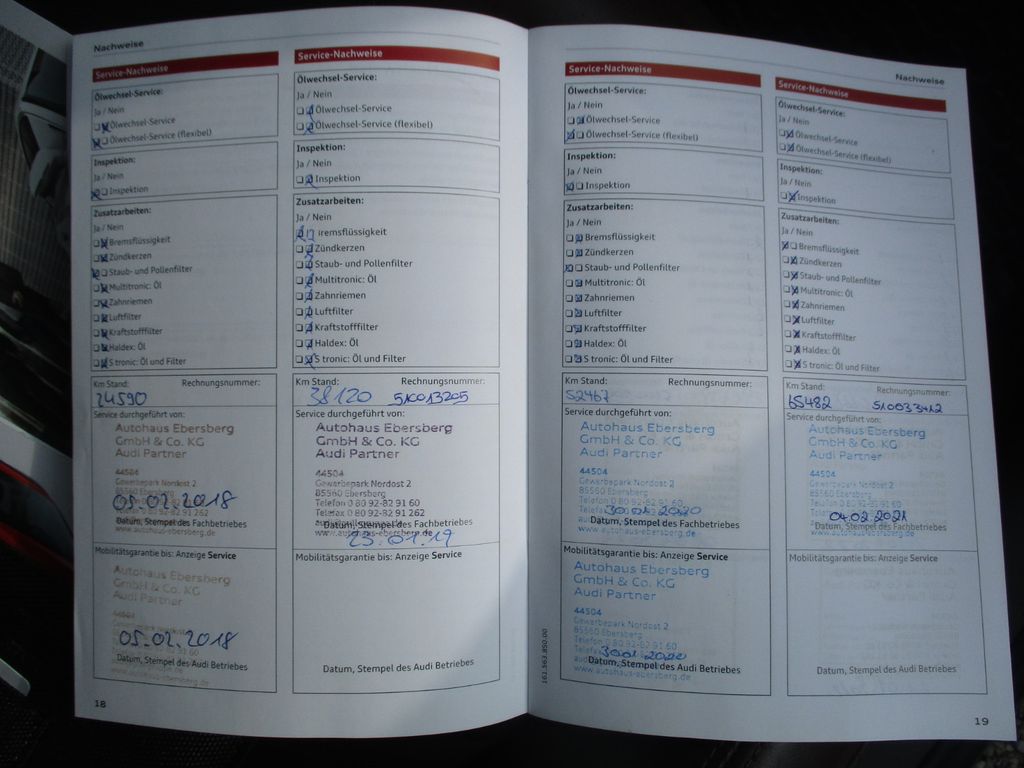 Nachweise
Service-Nachweise
Ölwechsel-Service:
Ja / Nein
Ölwechsel-Service
Ölwechsel-Service (flexibel)
Inspektion:
Ja / Nein
Inspektion
Zusatzarbeiten:
Ja / Nein
Bremsflüssigkeit
Zündkerzen
Staub- und Pollenfilter
Multitronic: Öl
Zahnriemen
Luftfilter
Kraftstofffilter
Haldex: Öl
S tronic: Öl und Filter
Km Stand: Rechnungsnummer:
24590
Service durchgeführt von:
Autohaus Ebersberg
GmbH & Co. KG
Audi Partner
44504
Gewerbepark Nordost 2
85560 Ebersberg
05.02.2018
Telefax 0 80 92-82 91 262
Datum, Stempel des Fachbetriebes
www.autohaus-ebersberg.de
Mobilitätsgarantie bis: Anzeige Service
Autohaus Ebersberg
GmbH & Co. KG
Audi Partner
05.02.2018
Datum, Stempel des Audi Betriebes
www.autohaus-ebersberg.de
18
Service-Nachweise
Ölwechsel-Service:
Ja / Nein
Ölwechsel-Service
Ölwechsel-Service (flexibel)
Inspektion:
Ja / Nein
Inspektion
Zusatzarbeiten:
Ja / Nein
Bremsflüssigkeit
Zündkerzen
Staub- und Pollenfilter
Multitronic: Öl
Zahnriemen
Luftfilter
Kraftstofffilter
Haldex: Öl
S tronic: Öl und Filter
Km Stand: Rechnungsnummer:
38120 510013205
Service durchgeführt von:
Autohaus Ebersberg
GmbH & Co. KG
Audi Partner
44504
Gewerbepark Nordost 2
85560 Ebersberg
Telefon 0 80 92-82 91 60
Telefax 0 80 92-82 91 262
Datum, Stempel des Fachbetriebes
www.autohaus-ebersberg.de
23.01.19
Mobilitätsgarantie bis: Anzeige Service
Datum, Stempel des Audi Betriebes
Service-Nachweise
Ölwechsel-Service:
Ja / Nein
Ölwechsel-Service
Ölwechsel-Service (flexibel)
Inspektion:
Ja / Nein
Inspektion
Zusatzarbeiten:
Ja / Nein
Bremsflüssigkeit
Zündkerzen
Staub- und Pollenfilter
Multitronic: Öl
Zahnriemen
Luftfilter
Kraftstofffilter
Haldex: Öl
S tronic: Öl und Filter
Km Stand: Rechnungsnummer:
52467
Service durchgeführt von:
Autohaus Ebersberg
GmbH & Co. KG
Audi Partner
44504
Gewerbepark Nordost 2
85560 Ebersberg
Telefon 0 80 92-82 91 60
30.01.2020
Datum, Stempel des Fachbetriebes
www.autohaus-ebersberg.de
Mobilitätsgarantie bis: Anzeige Service
Autohaus Ebersberg
GmbH & Co. KG
Audi Partner
44504
Gewerbepark Nordost 2
85560 Ebersberg
Telefon 0 80 92-82 91 60
30.01.2020
Datum, Stempel des Audi Betriebes
www.autohaus-ebersberg.de
162.563.850.00
Nachweise
Service-Nachweise
Ölwechsel-Service:
Ja / Nein
Ölwechsel-Service
Ölwechsel-Service (flexibel)
Inspektion:
Ja / Nein
Inspektion
Zusatzarbeiten:
Ja / Nein
Bremsflüssigkeit
Zündkerzen
Staub- und Pollenfilter
Multitronic: Öl
Zahnriemen
Luftfilter
Kraftstofffilter
Haldex: Öl
S tronic: Öl und Filter
Km Stand: Rechnungsnummer:
65482 510033412
Service durchgeführt von:
Autohaus Ebersberg
GmbH & Co. KG
Audi Partner
44504
Gewerbepark Nordost 2
85560 Ebersberg
04.02.2021
Datum, Stempel des Fachbetriebes
www.autohaus-ebersberg.de
Mobilitätsgarantie bis: Anzeige Service
Datum, Stempel des Audi Betriebes
19